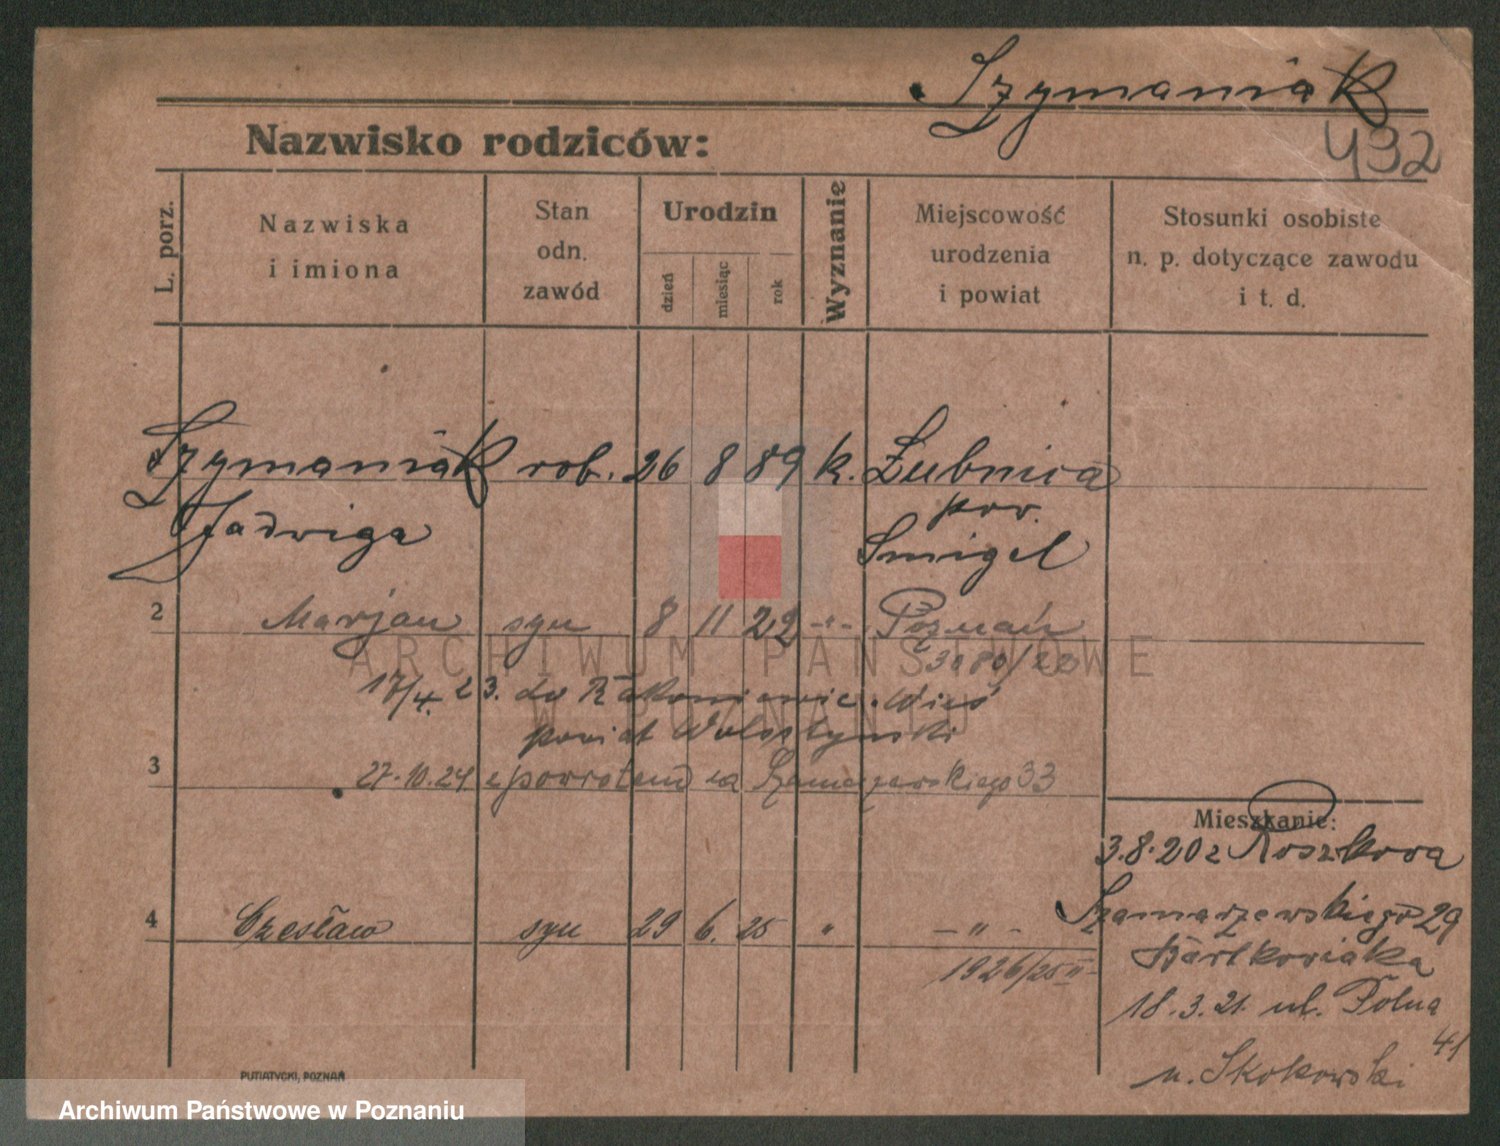 Szymaniak
432
Nazwisko rodziców:
L. porz.
Nazwiska
i imiona
Stan
odn.
zawód
Urodzin
dzień
miesiąc
rok
Wyznanie
Miejscowość
urodzenia
i powiat
Stosunki osobiste
n. p. dotyczące zawodu
i t. d.
Szymaniak rob. 26 8 89 k. Łubnica
Jadwiga
pow.
Smigel
2 Marjan syn 8 11 22 -"- Poznań
3080/22
17/4. 23. do Rakoniewic. Wieś
powiat Wolsztyński
3 27.10.24 z powrotem na Szamarzewskiego 33
Mieszkanie:
3.8.20 z Roszkowa
Szamarzewskiego 29
Bartkowiaka
18.3.21. ul. Polna
41
u. Skokowski
4 Czesław syn 29 6. 25 " -"-
1926/25 II
PUTIATYCKI, POZNAŃ
ARCHIWUM PAŃSTWOWE
W POZNANIU
Archiwum Państwowe w Poznaniu